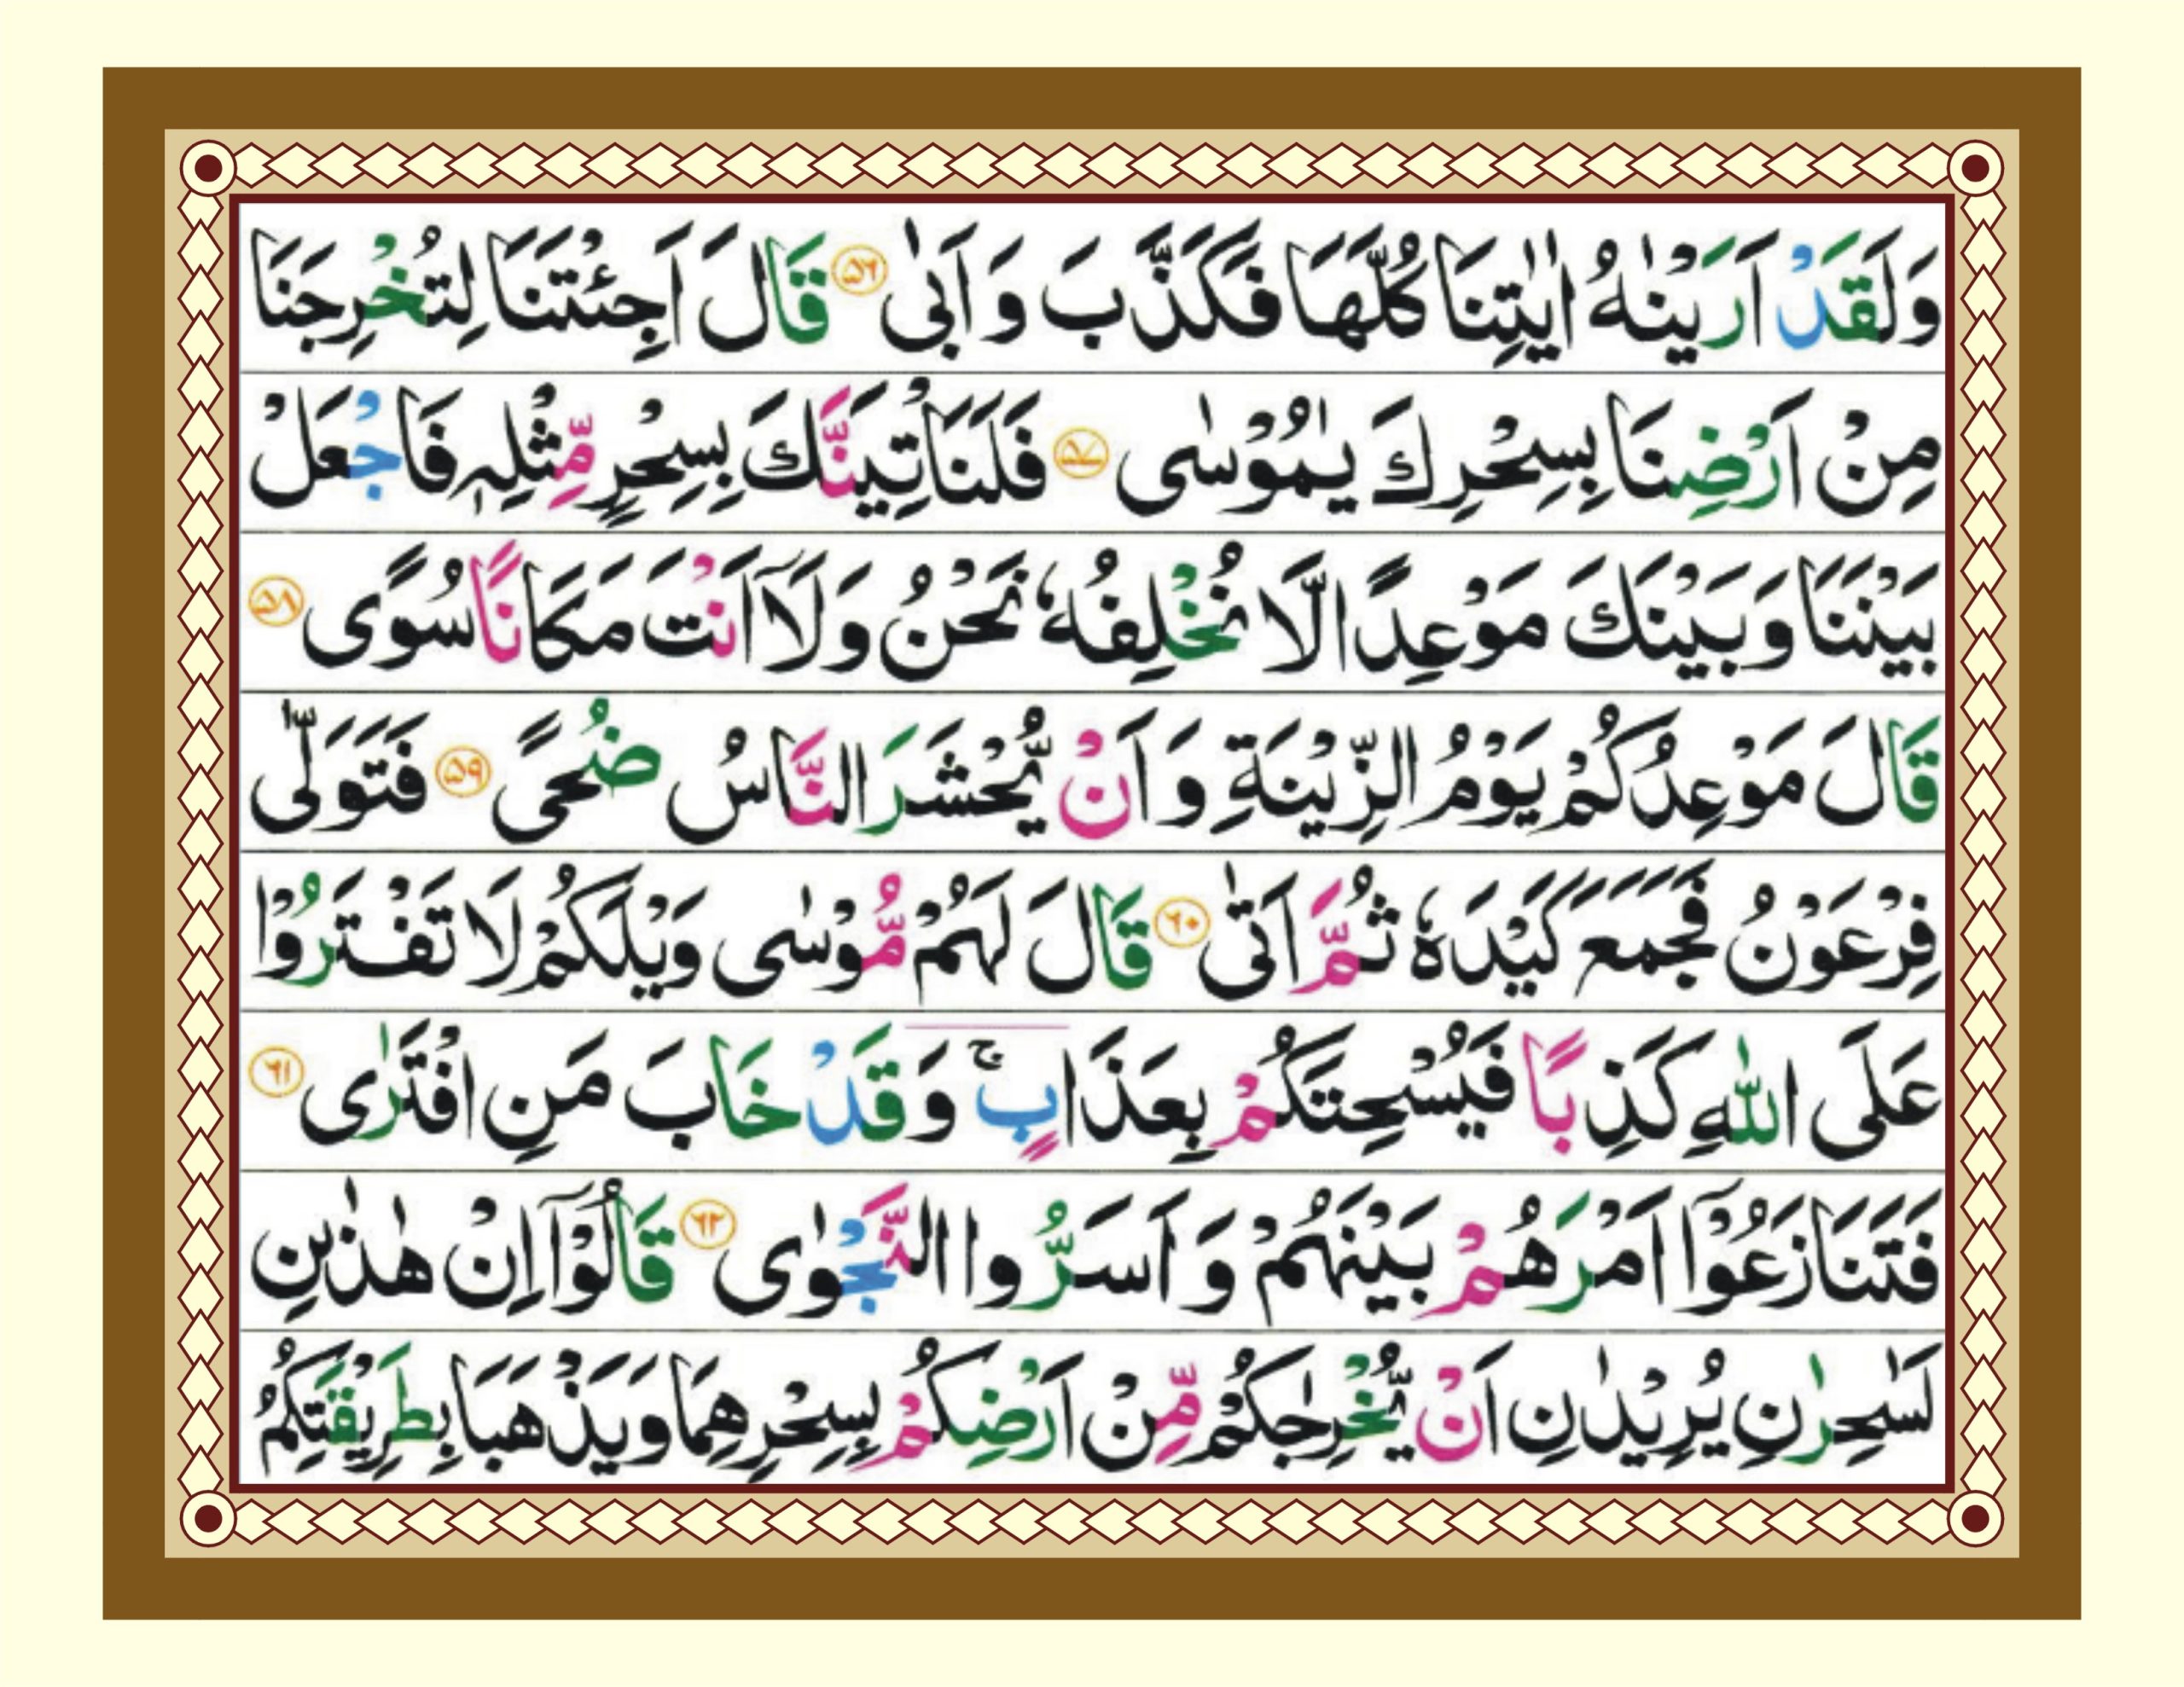 وَلَقَدْ اَرَيْنٰهُ اٰيٰتِنَا كُلَّهَا فَكَذَّبَ وَ اَبٰى ﴿۵۶﴾ قَالَ اَجِئْتَنَا لِتُخْرِجَنَا
مِنْ اَرْضِنَا بِسِحْرِكَ يٰمُوْسٰى ﴿۵۷﴾ فَلَنَاْتِيَنَّكَ بِسِحْرٍ مِّثْلِهٖ فَاجْعَلْ
بَيْنَنَا وَ بَيْنَكَ مَوْعِدًا لَّا نُخْلِفُهٗ نَحْنُ وَلَآ اَنْتَ مَكَانًا سُوًى ﴿۵۸﴾
قَالَ مَوْعِدُكُمْ يَوْمُ الزِّيْنَةِ وَ اَنْ يُّحْشَرَ النَّاسُ ضُحًى ﴿۵۹﴾ فَتَوَلّٰى
فِرْعَوْنُ فَجَمَعَ كَيْدَهٗ ثُمَّ اَتٰى ﴿۶۰﴾ قَالَ لَهُمْ مُّوْسٰى وَيْلَكُمْ لَا تَفْتَرُوْا
عَلَى اللّٰهِ كَذِبًا فَيُسْحِتَكُمْ بِعَذَابٍ ۚ وَ قَدْ خَابَ مَنِ افْتَرٰى ﴿۶۱﴾
فَتَنَازَعُوْٓا اَمْرَهُمْ بَيْنَهُمْ وَ اَسَرُّوا النَّجْوٰى ﴿۶۲﴾ قَالُوْٓا اِنْ هٰذٰىنِ
لَسٰحِرٰنِ يُرِيْدٰنِ اَنْ يُّخْرِجٰكُمْ مِّنْ اَرْضِكُمْ بِسِحْرِهِمَا وَيَذْهَبَا بِطَرِيْقَتِكُمُ